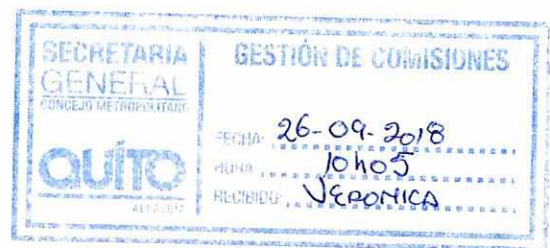 SECRETARIA
GENERAL
CONCEJO METROPOLITANO
QUITO
ALCALDÍA
GESTIÓN DE COMISIONES
FECHA: 26-09-2018
HORA: 10h05
RECIBIDO: VERONICA